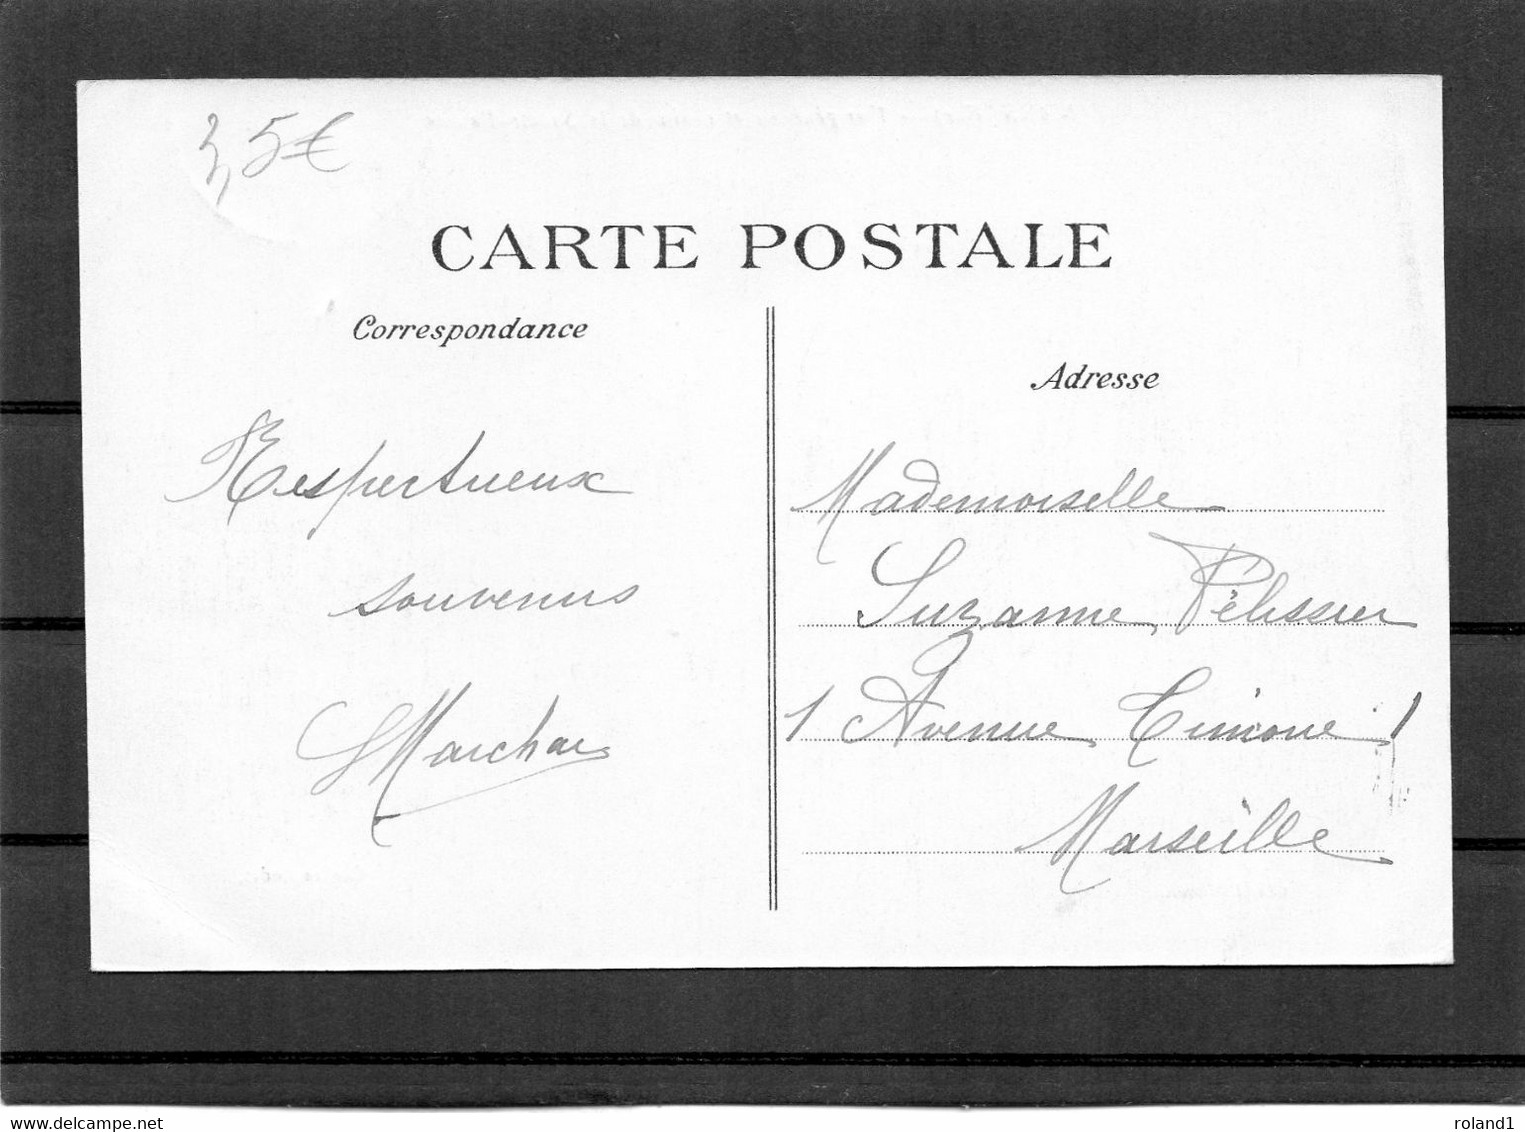 3,5€
CARTE POSTALE
Correspondance
Adresse
Respectueux
souvenirs
Mademoiselle
Suzanne Pélissier
1 Avenue 1
Marseille
www.delcampe.net
roland1